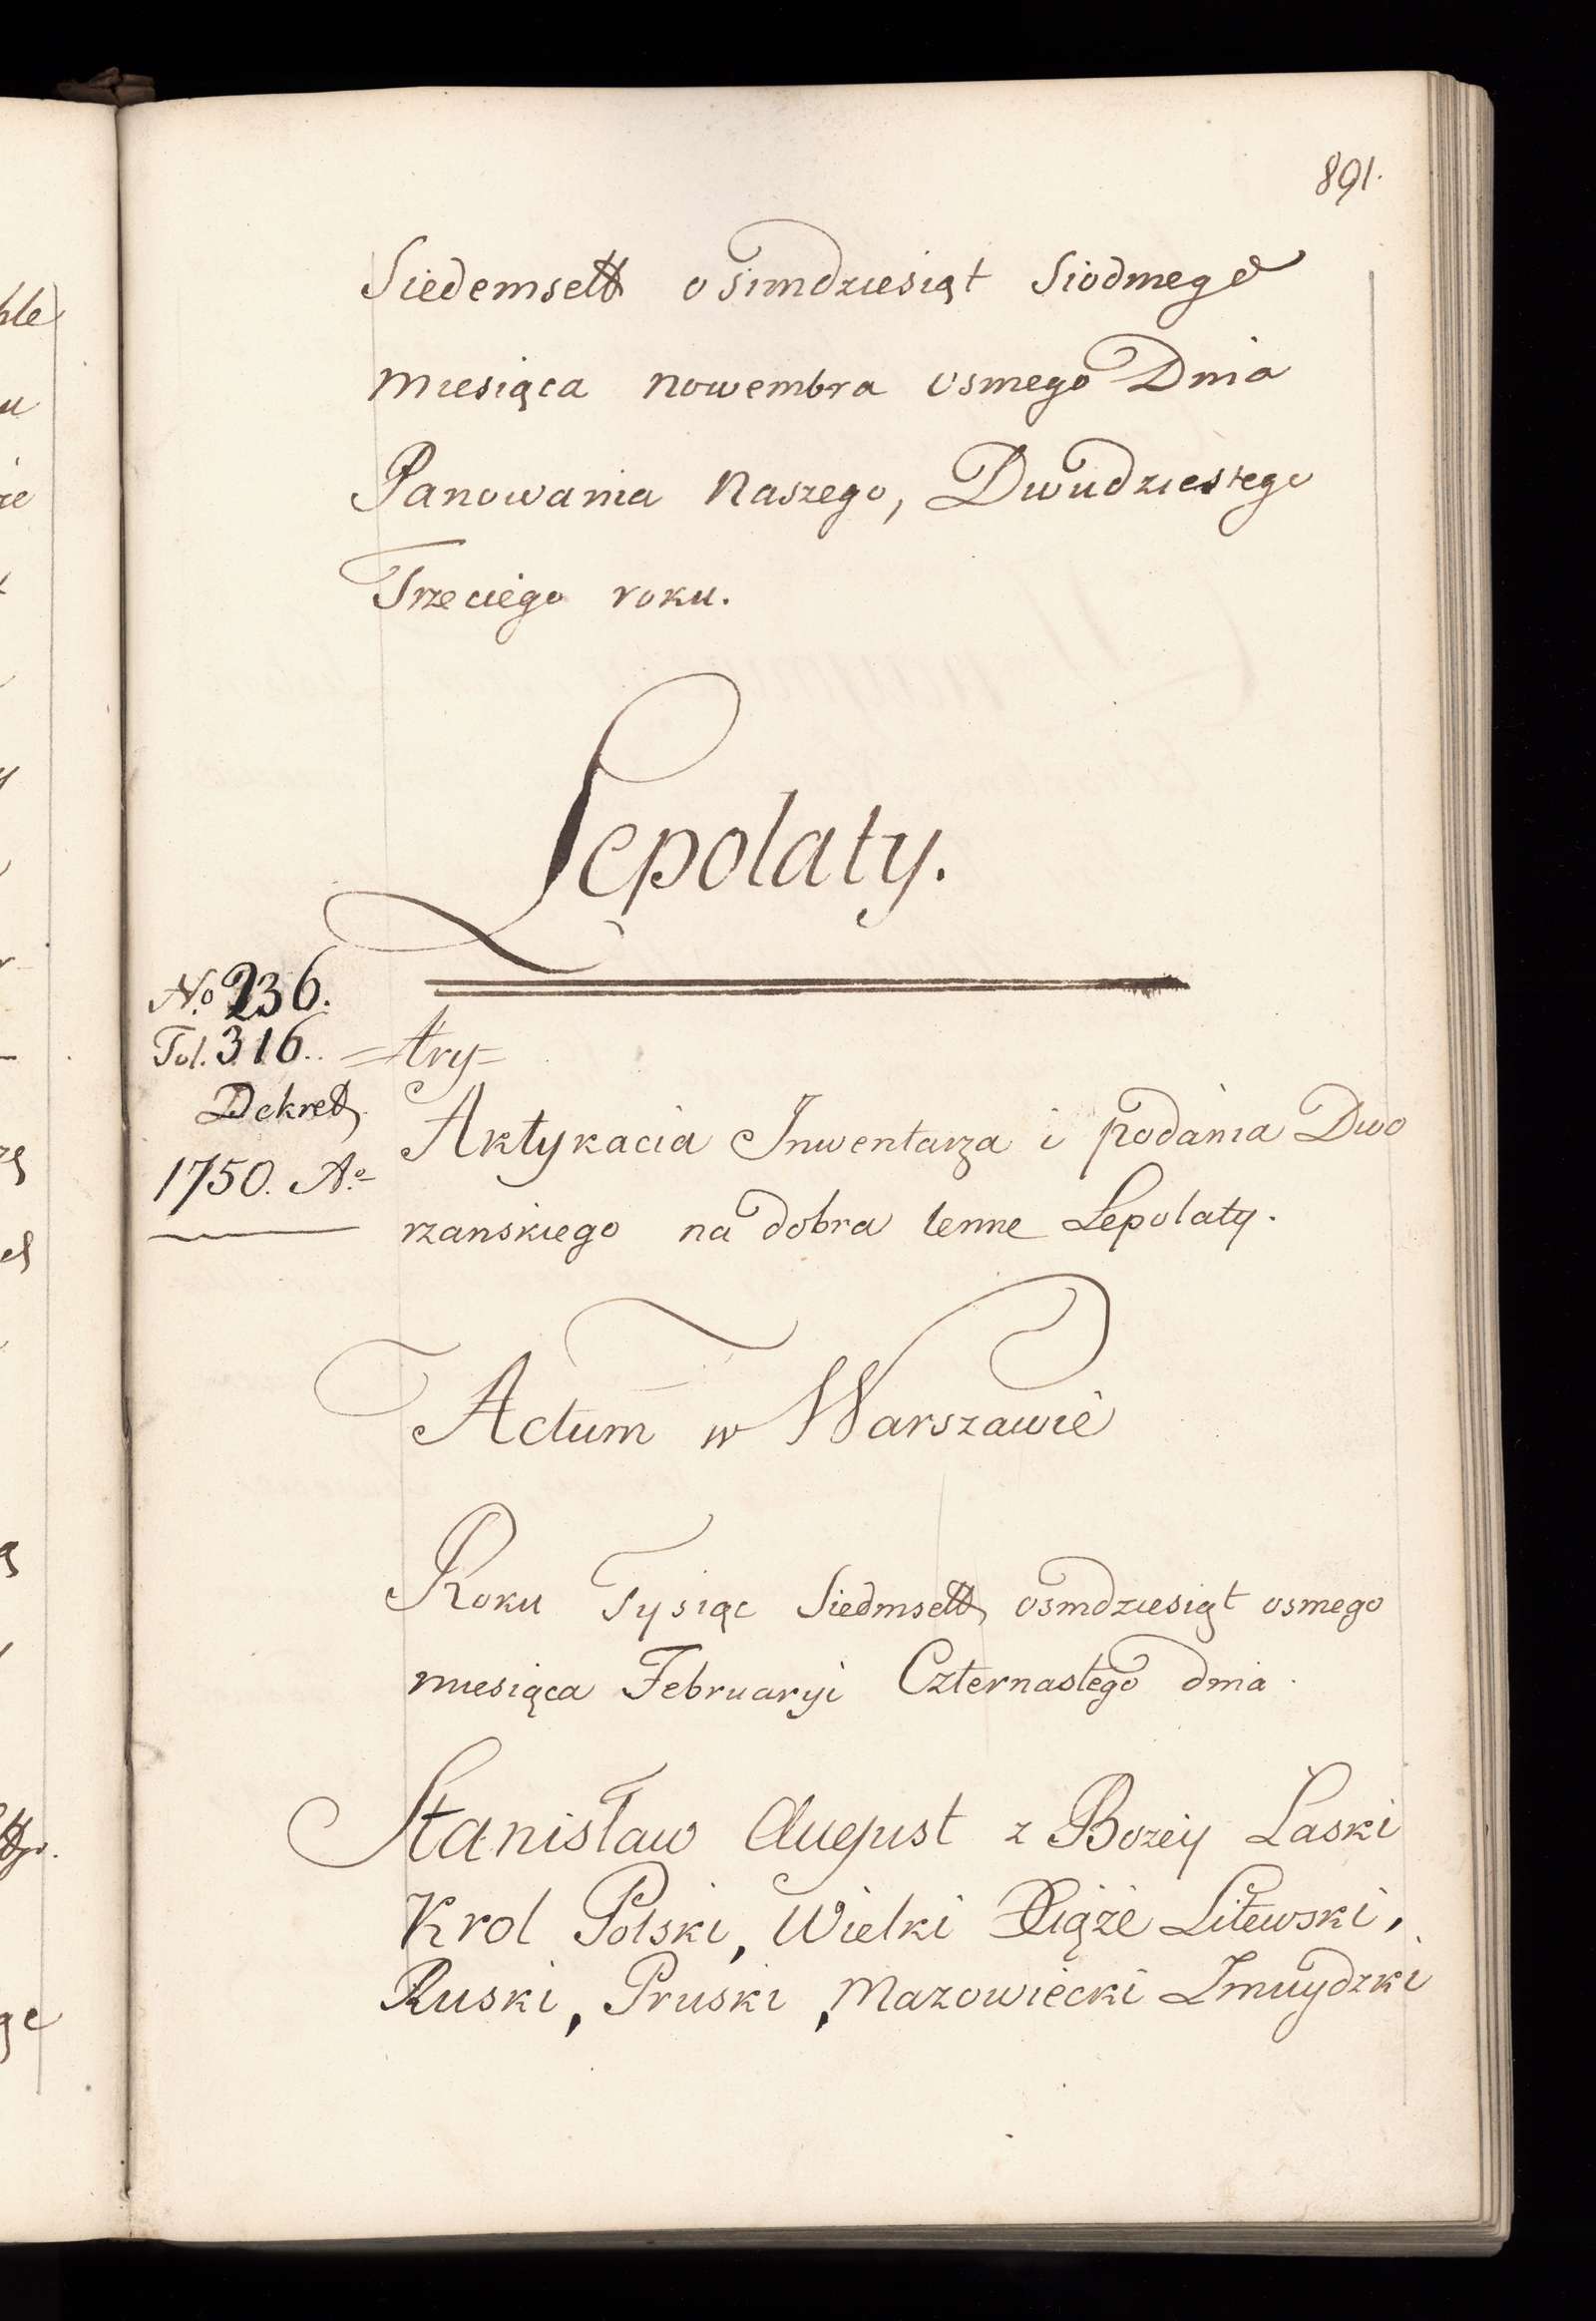 891.
Siedemsett osimdziesiąt Siodmego
miesiąca nowembra osmego Dnia
Panowania naszego, Dwudziestego
Trzeciego roku.
Lepolaty.
No 236.
Fol. 316.
Dekret
1750. Ao
=try=
Aktykacia Inwentarza i podania Dwo
rzanskiego na dobra lenne Lepolaty.
Actum w Warszawie
Roku Tysiąc Siedmsett osmdziesiąt osmego
miesiąca Februaryi Czternastego dnia
Stanisław August z Bozey Laski
Krol Polski, Wielki Xiąże Litewski,
Ruski, Pruski, Mazowiecki Zmuydzki